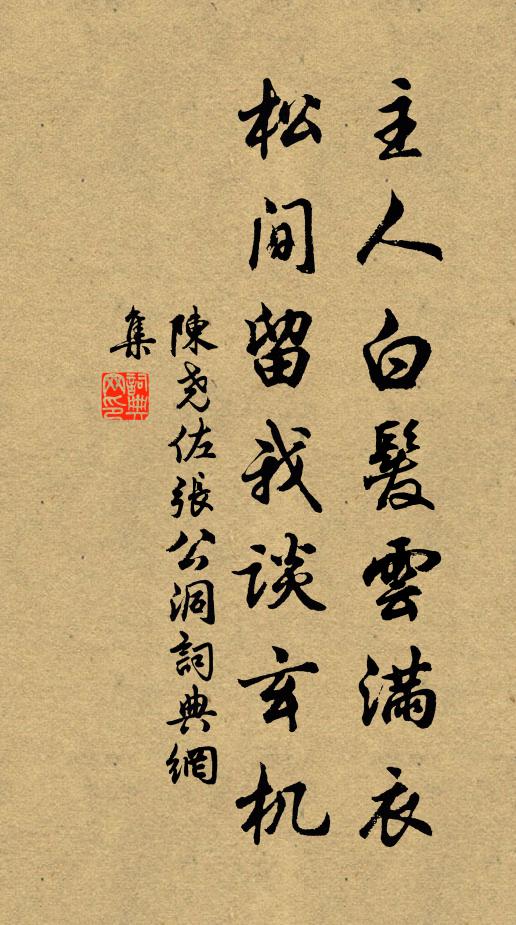 主人白髮雲滿衣
松間留我談玄机
陳堯佐張公洞詞典網
集
詞典網印